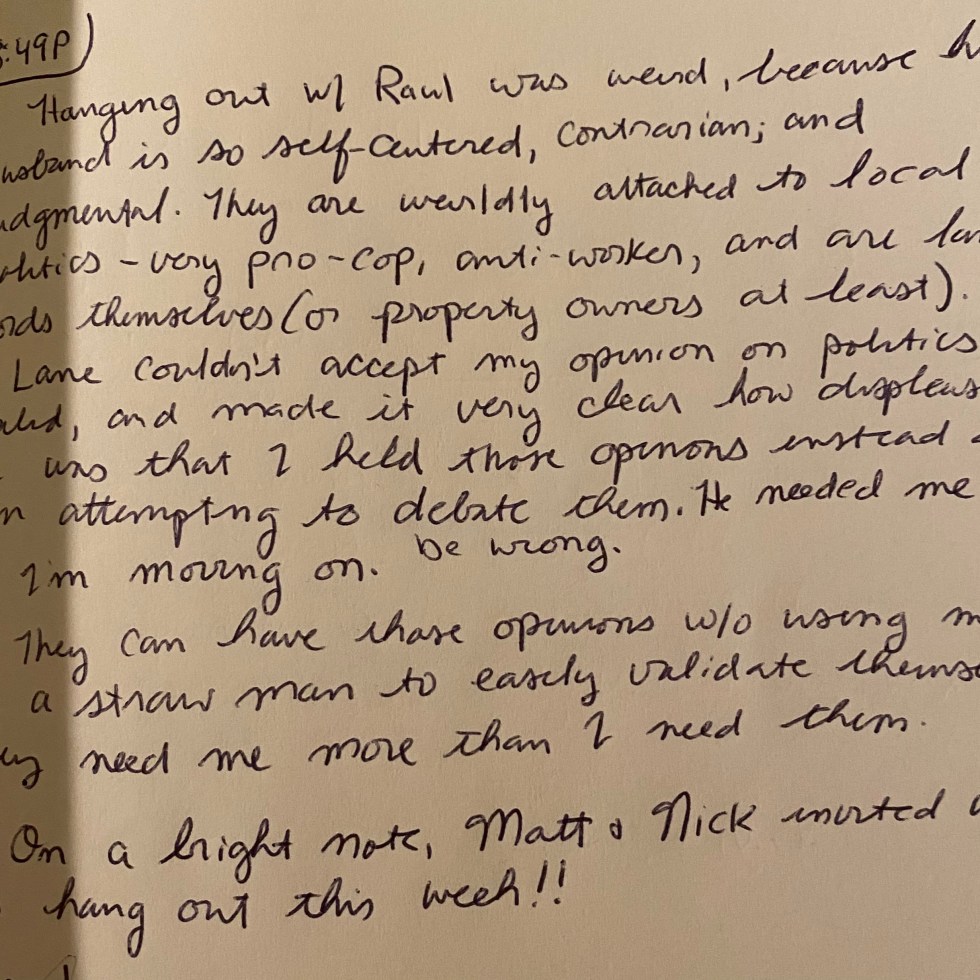 :49P
Hanging out w/ Raul was weird, because h
usband is so self-centered, contrarian, and
udgmental. They are weirldly attached to local
olitics - very pro-cop, anti-worker, and are lan
ords themselves (or property owners at least).
Lane couldn't accept my opinion on politics
alid, and made it very clear how displeas
was that I held those opinions instead
n attempting to debate them. He needed me
be wrong.
I'm moving on.
They can have those opinions w/o using m
a straw man to easily validate themse
ey need me more than I need them.
On a bright note, Matt & Nick invited
hang out this week!!